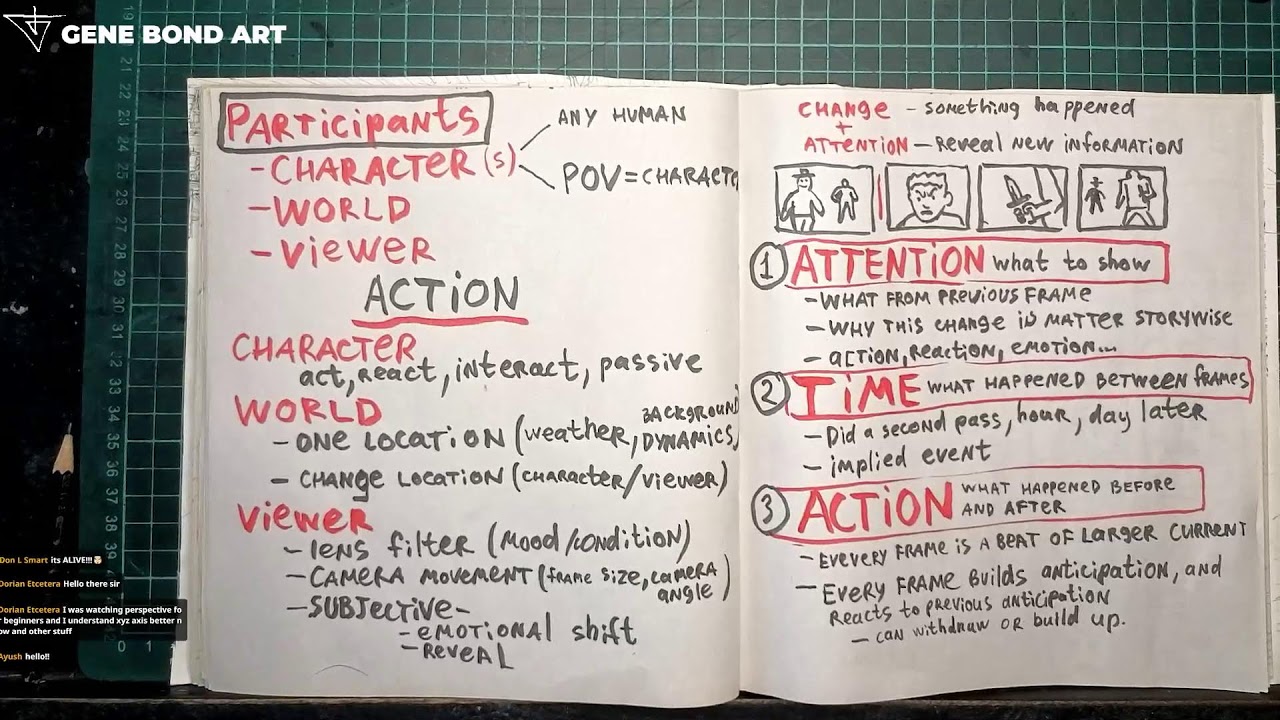 GENE BOND ART
PARTICIPANTS
-CHARACTER (s)
ANY HUMAN
POV=CHARACTE
-WORLD
-VIEWER
ACTION
CHARACTER
act, react, interact, passive
WORLD
- ONE LOCATION (weather, BACKGROUND DYNAMICS)
- CHANGE LOCATION (CHARACTER/VIEWER)
VIEWER
- lens filter (MOOD/CONDITION)
- CAMERA MOVEMENT (FRAME SIZE, CAMERA angle)
- SUBJECTIVE-
- EMOTIONAL shift
- REVEAL
CHANGE - something happened
+
ATTENTION - REVEAL NEW INFORMATION
1 ATTENTION what to show
- WHAT FROM PREVIOUS FRAME
- WHY THIS CHANGE IS MATTER STORYWISE
- ACTION, REACTION, EMOTION...
2 TIME WHAT HAPPENED BETWEEN FRAMES
- Did a second pass, hour, day later
- implied event
3 ACTION WHAT HAPPENED BEFORE AND AFTER
- EVEVERY FRAME IS A BEAT OF LARGER CURRENT
- EVERY FRAME BUILDS ANTICIPATION, AND
REACTS TO PREVIOUS ANTICIPATION
- CAN WITHDRAW OR BUILD UP.
Don L Smart its ALIVE!!!🤯
Dorian Etcetera Hello there sir
Dorian Etcetera I was watching perspective fo
r beginners and I understand xyz axis better n
ow and other stuff
Ayush hello!!
19
21
22
23
24
25
26
27
28
29
30
31
32
33
34
35
36
37
38
39
0 1